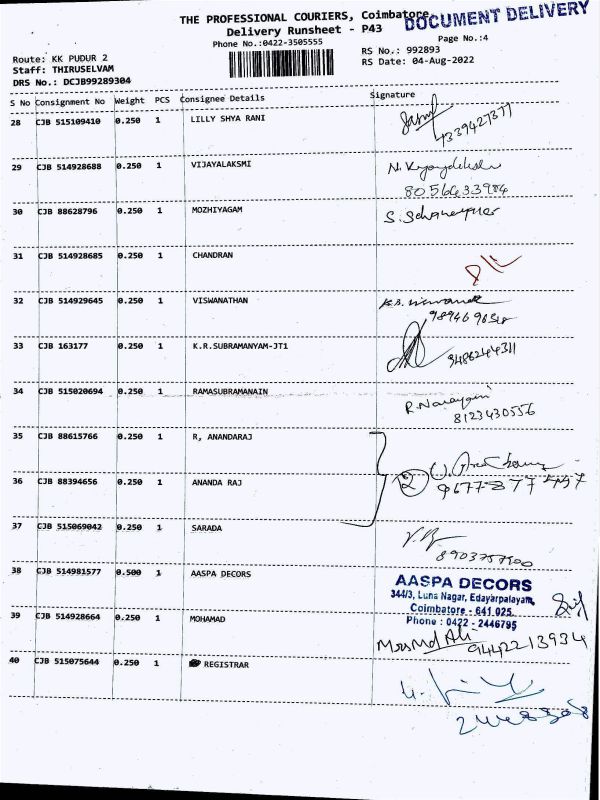 THE PROFESSIONAL COURIERS, Coimbatore
DOCUMENT DELIVERY
Delivery Runsheet - P43
Phone No.:0422-3505555
Page No.:4
Route: KK PUDUR 2
RS No.: 992893
Staff: THIRUSELVAM
RS Date: 04-Aug-2022
DRS No.: DCJB99289304
S No Consignment No Weight PCS Consignee Details Signature
28 CJB 515109410 0.250 1 LILLY SHYA RANI
29 CJB 514928688 0.250 1 VIJAYALAKSMI
8056433984
30 CJB 88628796 0.250 1 MOZHIYAGAM
31 CJB 514928685 0.250 1 CHANDRAN
32 CJB 514929645 0.250 1 VISWANATHAN
33 CJB 163177 0.250 1 K.R.SUBRAMANYAM-JT1
9486244311
34 CJB 515020694 0.250 1 RAMASUBRAMANAIN
R. Narayani
8123430556
35 CJB 88615766 0.250 1 R, ANANDARAJ
36 CJB 88394656 0.250 1 ANANDA RAJ
2
37 CJB 515069042 0.250 1 SARADA
8903757900
38 CJB 514981577 0.500 1 AASPA DECORS
AASPA DECORS
344/3, Luna Nagar, Edayarpalayam,
Coimbatore - 641 025.
Phone : 0422 - 2446795
39 CJB 514928664 0.250 1 MOHAMAD
9442213934
40 CJB 515075644 0.250 1 REGISTRAR